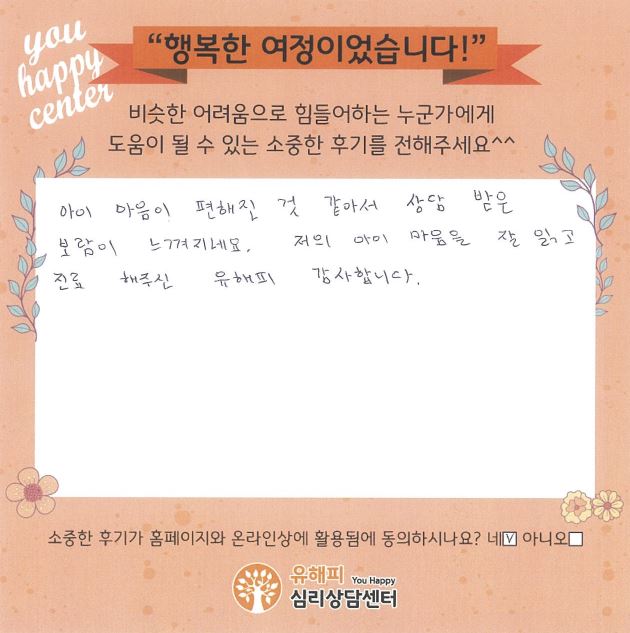 you
happy
center
“행복한 여정이었습니다!”
비슷한 어려움으로 힘들어하는 누군가에게
도움이 될 수 있는 소중한 후기를 전해주세요^^
아이 마음이 편해진 것 같아서 상담 받은
보람이 느껴지네요. 저의 아이 마음을 잘 읽고
진료 해주신 유해피 감사합니다.
소중한 후기가 홈페이지와 온라인상에 활용됨에 동의하시나요? 네☑ 아니오☐
유해피 You Happy
심리상담센터